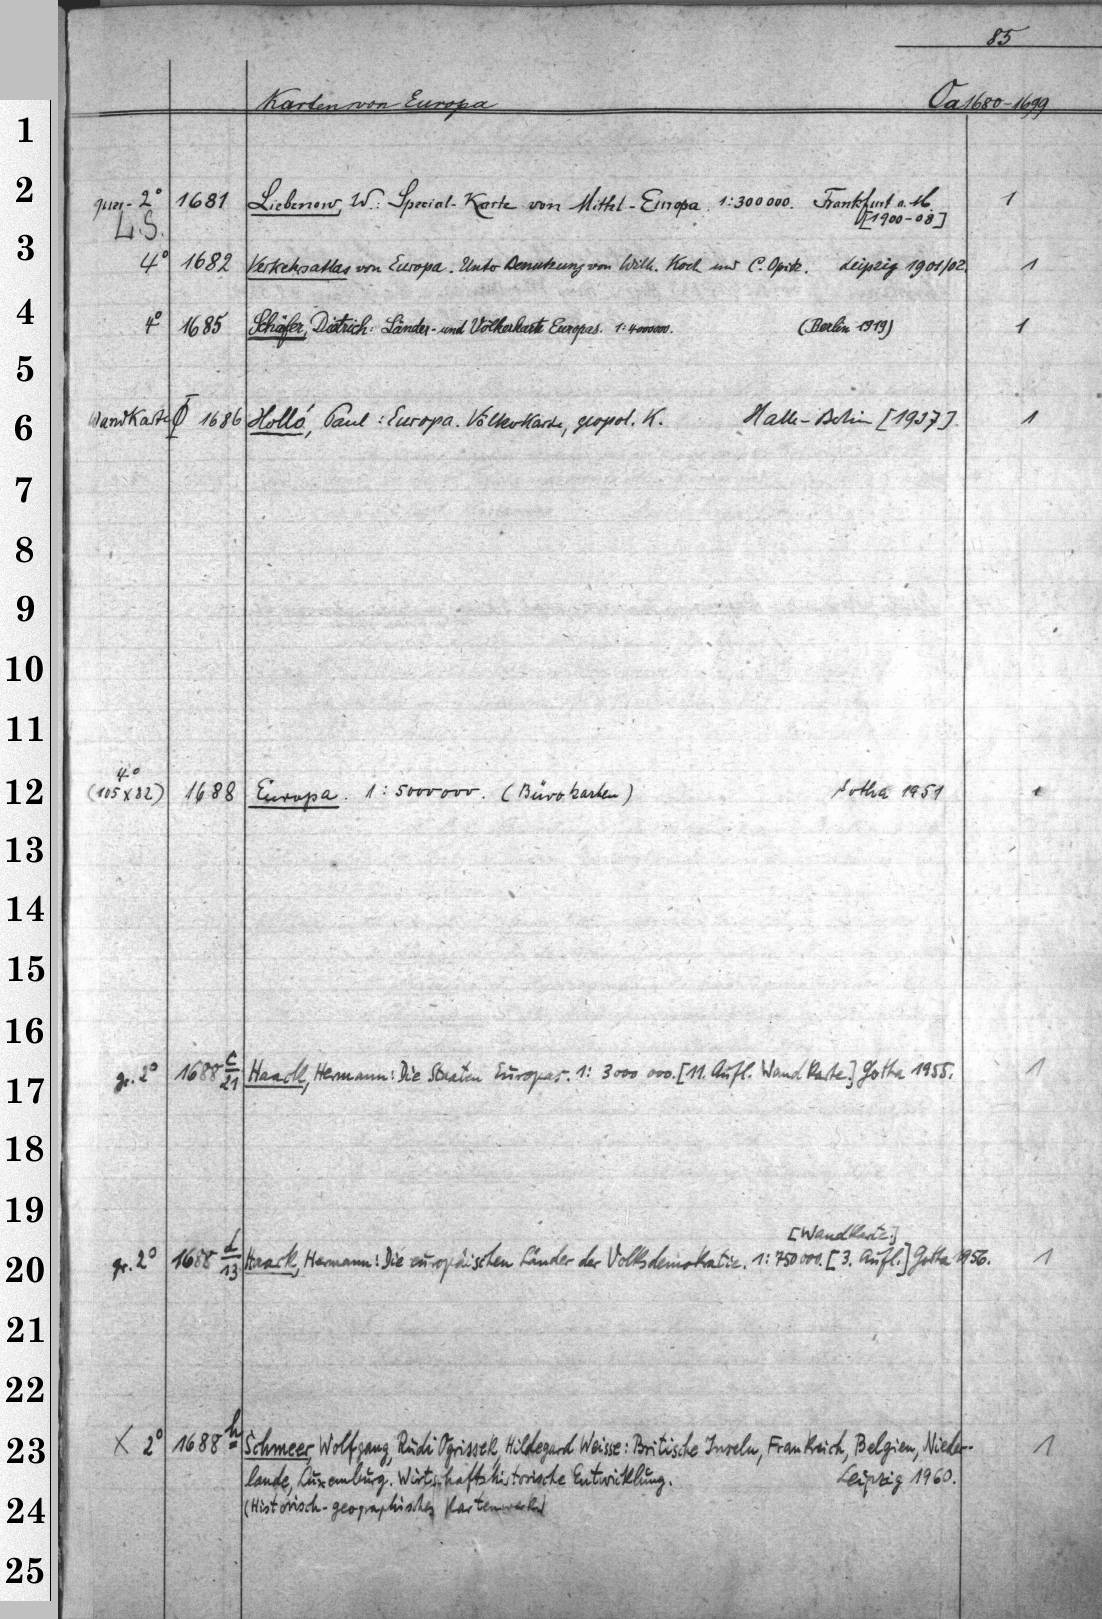 85
Karten von Europa Oa 1680-1699
1
2 quer-2° 1681 Liebenow, W.: Special-Karte von Mittel-Europa. 1:300000. Frankfurt a. M. 1
L.S. [1900-08]
3 4° 1682 Verkehrsatlas von Europa. Unter Benutzung von Wilh. Koch und C. Opitz. Leipzig 1901/02. 1
4 4° 1685 Schäfer, Dietrich: Länder- und Völkerkarte Europas. 1:4000000. (Berlin 1919) 1
5
6 Wandkarte 1686 Holló, Paul: Europa. Völkerkarte, geopol. K. Halle-Berlin [1937]. 1
7
8
9
10
11
4°
12 (105x82) 1688 Europa. 1:5000000. (Bürokarten) Gotha 1951 1
13
14
15
16
17 gr. 2° 1688 c/21 Haack, Hermann: Die Staaten Europas. 1: 3000 000. [11. Aufl. Wandkarte.] Gotha 1955. 1
18
19
[Wandkarte]
20 gr. 2° 1688 d/13 Haack, Hermann: Die europäischen Länder der Volksdemokratie. 1:750000. [3. Aufl.] Gotha 1956. 1
21
22
23 X 2° 1688 h Schmeer, Wolfgang, Rudi Ogrissek, Hildegard Weisse: Britische Inseln, Frankreich, Belgien, Nieder- 1
lande, Luxemburg. Wirtschaftshistorische Entwicklung. Leipzig 1960.
24 (Historisch-geographisches Kartenwerk)
25